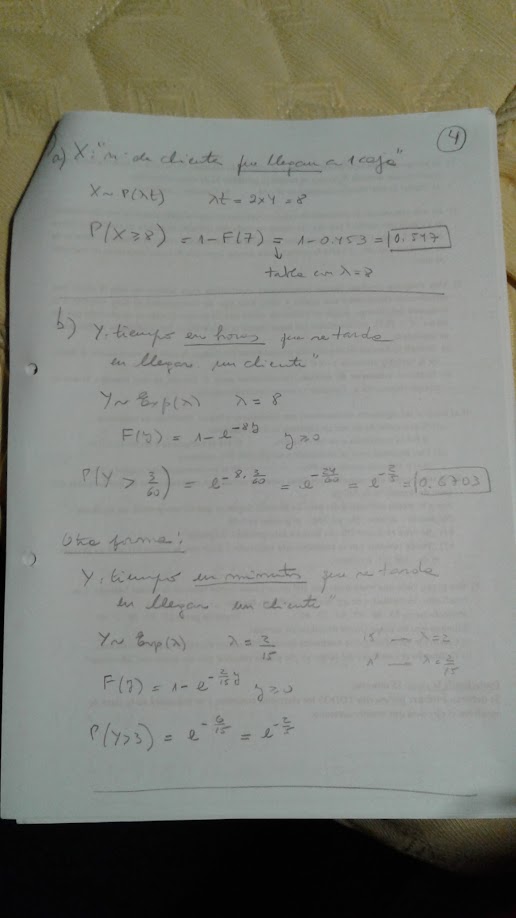 4
a) X: "nº de clientes que llegan a 1 caja"
X ~ P(λt) λt = 2x4 = 8
P(X ≥ 8) = 1 - F(7) = 1 - 0.453 = 0.547
↓
tabla con λ = 8
b) Y: tiempo en horas que se tarda
en llegar un cliente"
Y ~ Exp(λ) λ = 8
F(y) = 1 - e^{-8y} y ≥ 0
P(Y > 3/60) = e^{-8·3/60} = e^{-24/60} = e^{-2/5} = 0.6703
Otra forma:
Y: tiempo en minutos que se tarda
en llegar un cliente"
Y ~ Exp(λ) λ = 2/15 15' — λ = 2
F(y) = 1 - e^{-2/15 y} y ≥ 0 1' — λ = 2/15
P(Y>3) = e^{-6/15} = e^{-2/5}